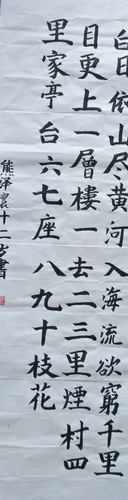 白日依山尽黄河入海流欲窮千里
目更上一層樓一去二三里煙村四
里家亭台六七座八九十枝花
熊泽宸十二岁書